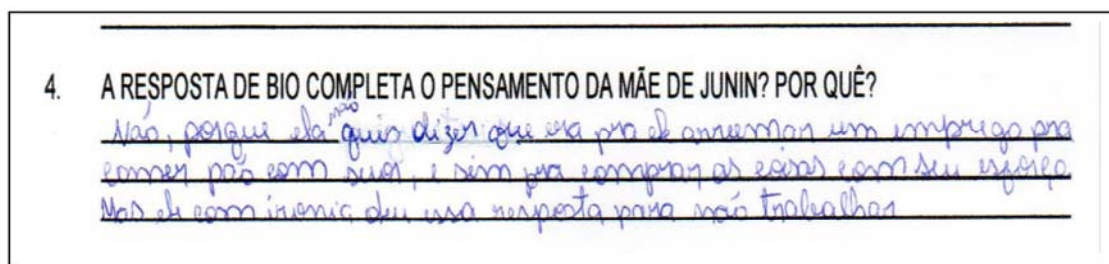 4. A RESPOSTA DE BIO COMPLETA O PENSAMENTO DA MÃE DE JUNIN? POR QUÊ?
Não, porque ela não quis dizer que era pra ele arrumar um emprego pra
comer pão com suor, e sim pra comprar as coisas com seu esforço
Mas ele com ironia deu essa resposta para não trabalhar